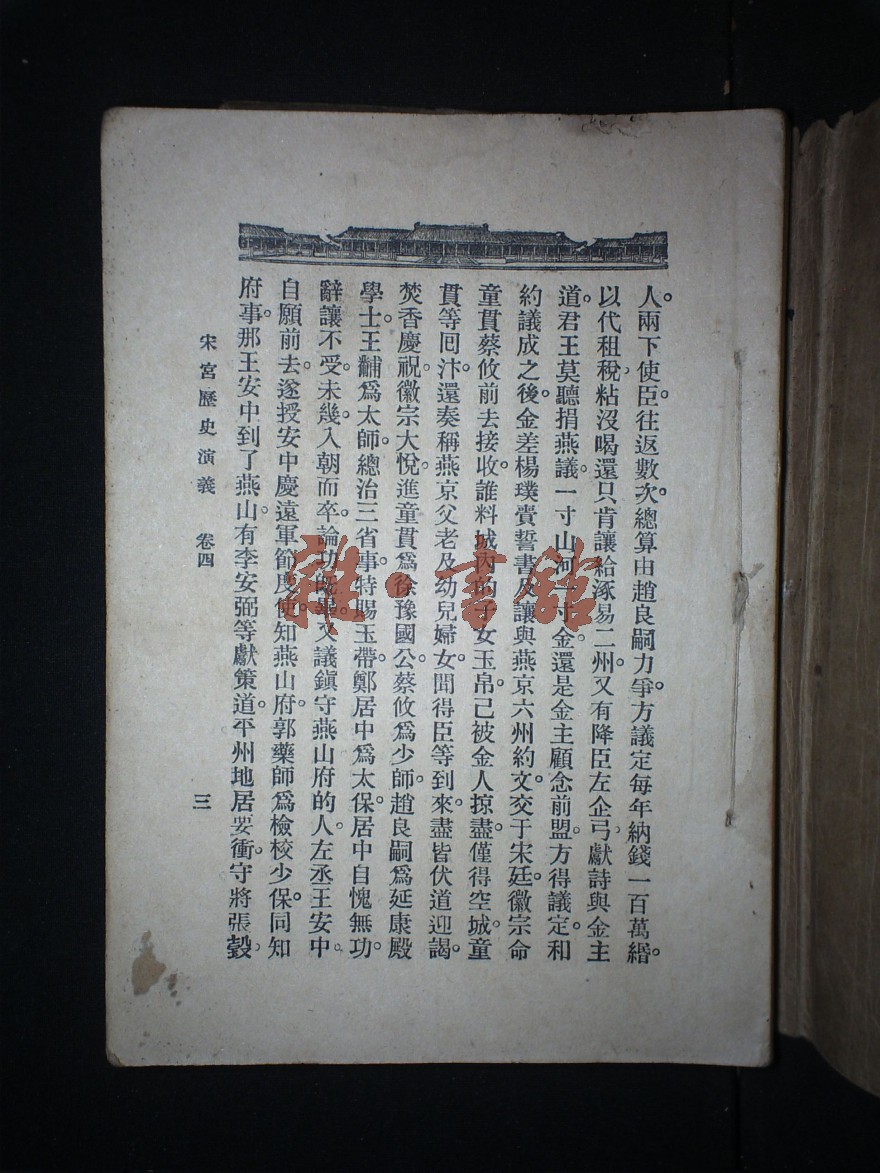 人。兩下使臣。往返數次。總算由趙良嗣力爭。方議定每年納錢一百萬緡。
以代租稅。粘沒喝還只肯讓給涿易二州。又有降臣左企弓。獻詩與金主
道。君王莫聽捐燕議。一寸山河一寸金。還是金主顧念前盟。方得議定。和
約議成之後。金差楊璞賫誓書及讓與燕京六州約文。交于宋廷。徽宗命
童貫蔡攸前去接收。誰料城內的子女玉帛。已被金人掠盡。僅得空城。童
貫等囘汴。還奏稱燕京父老及幼兒婦女。聞得臣等到來。盡皆伏道迎謁。
焚香慶祝。徽宗大悅。進童貫爲徐豫國公。蔡攸爲少師。趙良嗣爲延康殿
學士。王黼爲太師。總治三省事。特賜玉帶。鄭居中爲太保。居中自愧無功。
辭讓不受。未幾入朝而卒。論功既畢。又議鎭守燕山府的人。左丞王安中。
自願前去。遂授安中慶遠軍節度使。知燕山府。郭藥師爲檢校少保。同知
府事。那王安中到了燕山。有李安弼等獻策道。平州地居要衝。守將張瑴。
宋宮歷史演義 卷四 三
雜·書館